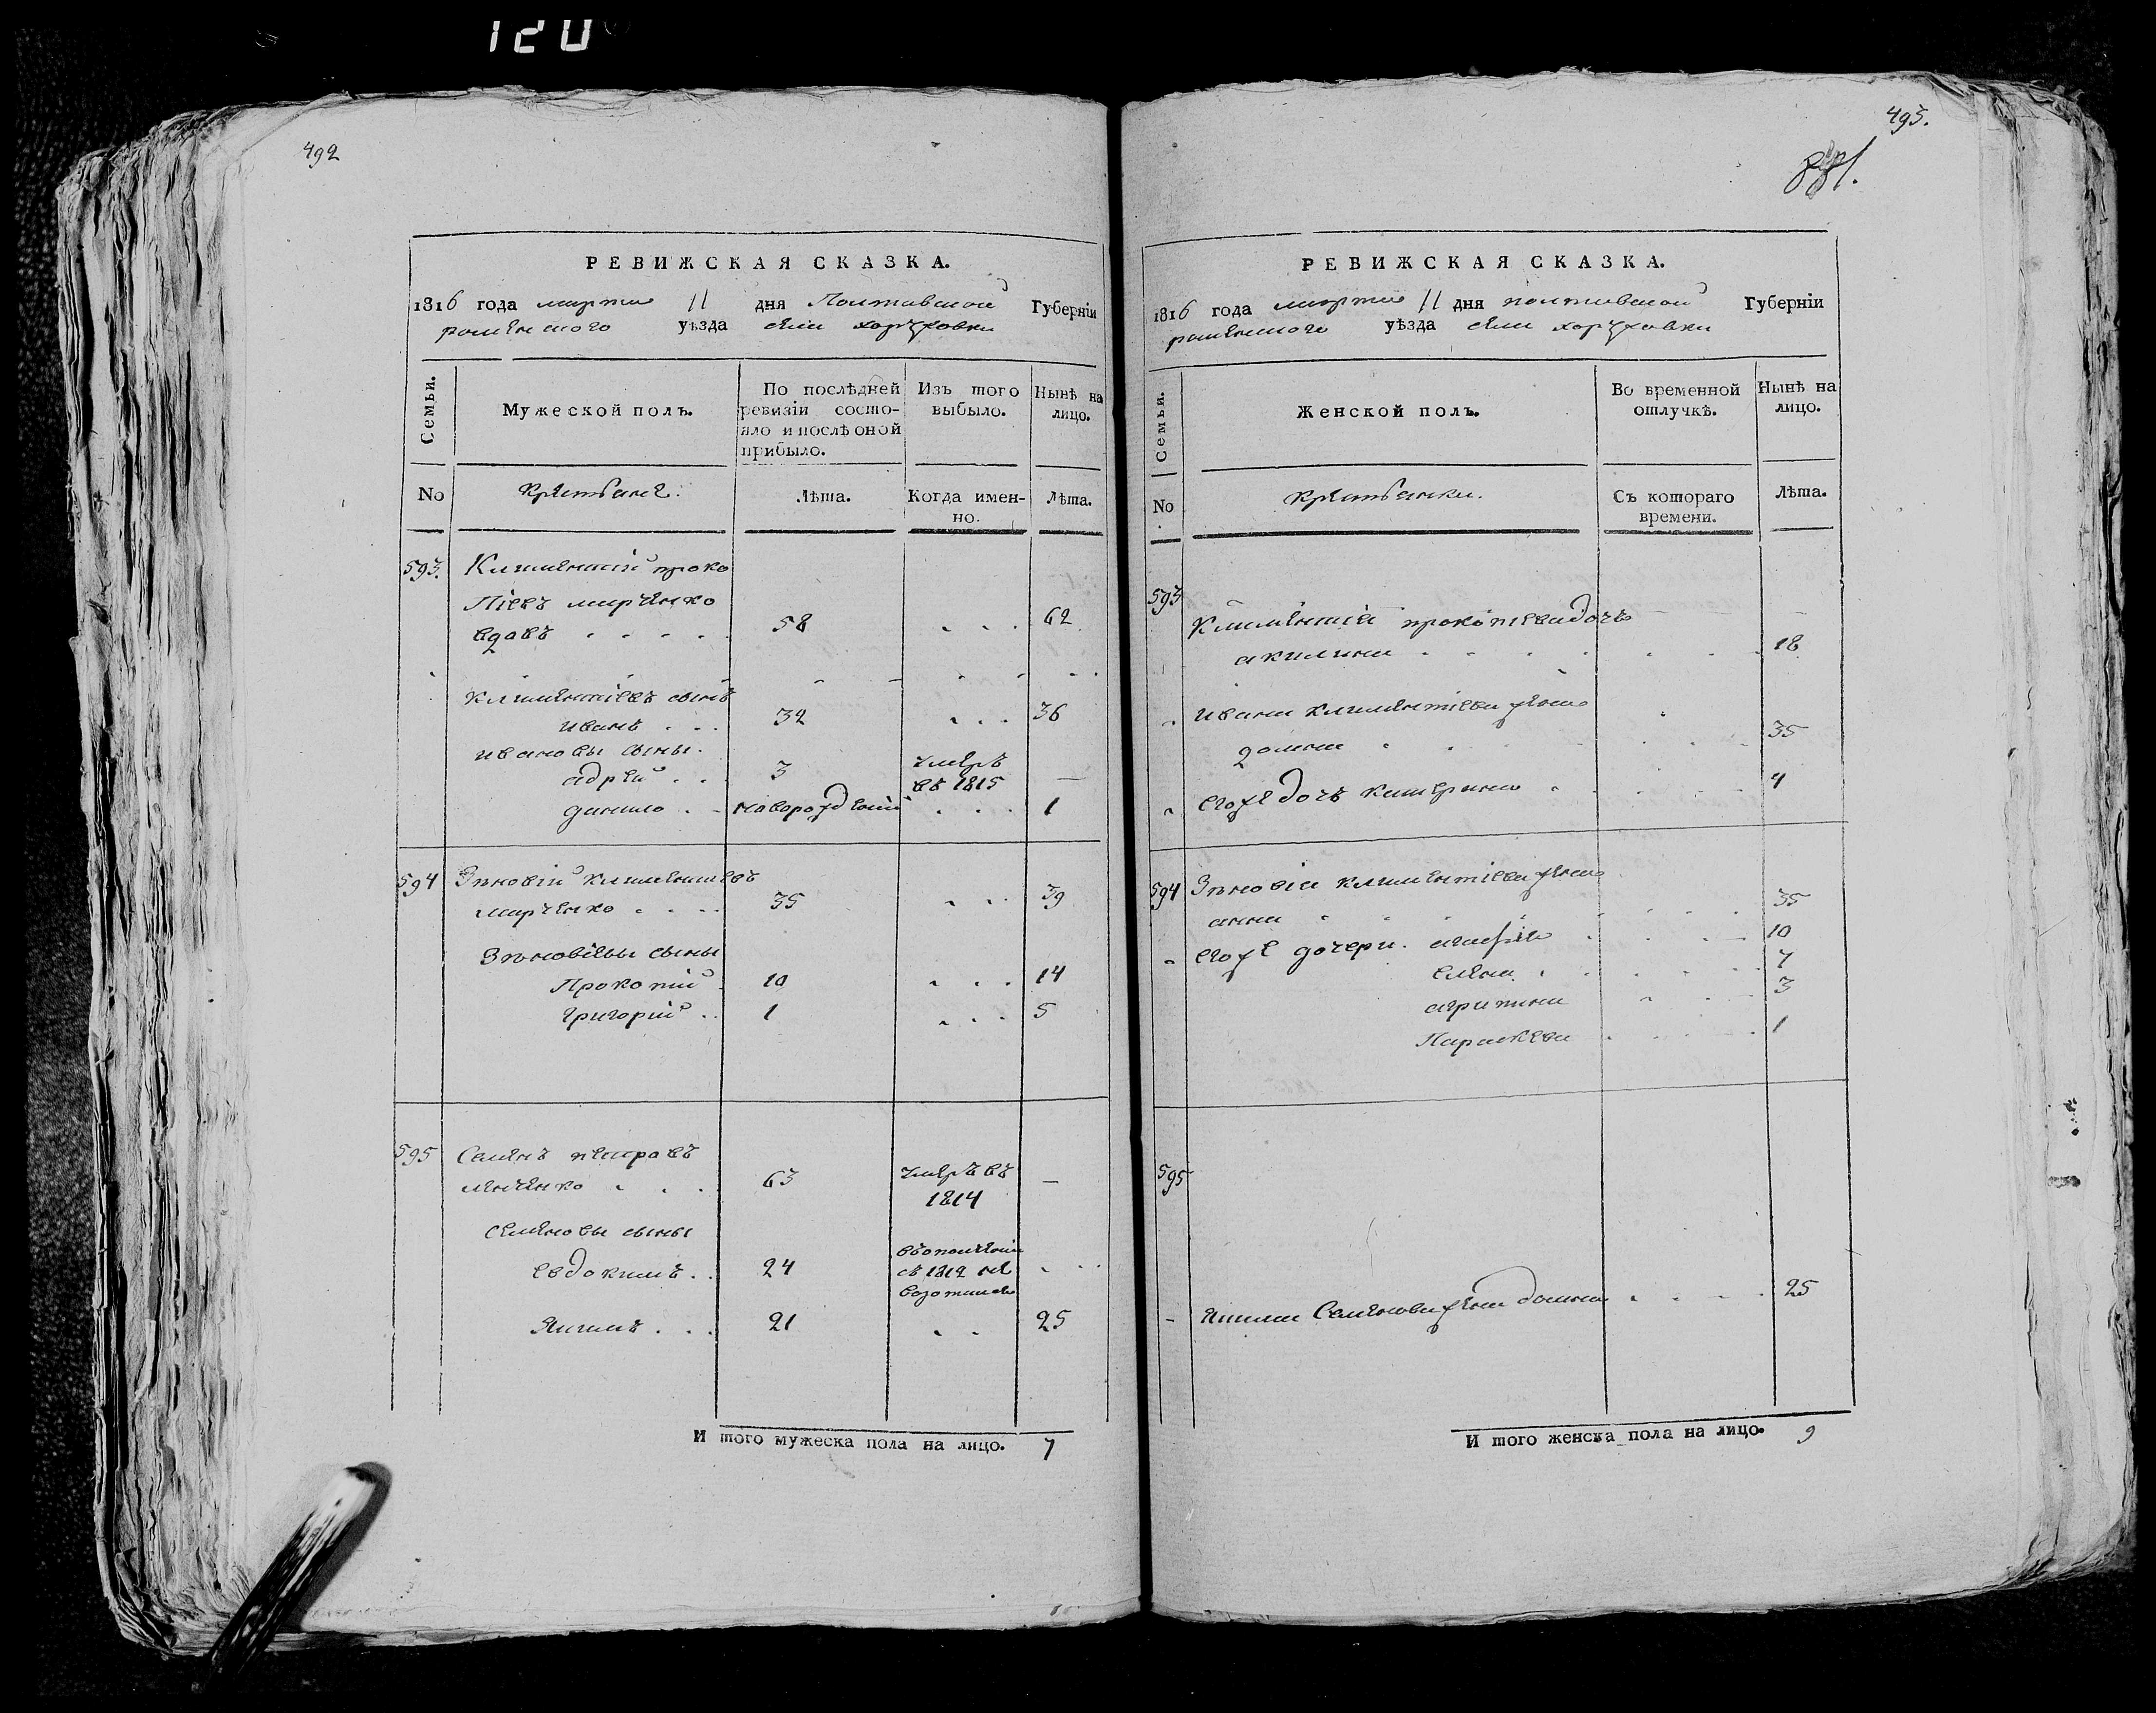 120
492
РЕВИЖСКАЯ СКАЗКА.
1816 года марта 11 дня Полтавской Губерніи
роменского уѣзда села хоружовки
Семьи.
Мужеской полъ.
По послѣдней ревизіи состояло и послѣ оной прибыло.
Изъ того выбыло.
Нынѣ на лицо.
No
Крестьяне.
Лѣта.
Когда именно.
Лѣта.
593. Климентій проко
піевъ марченко
вдовъ 58 62
климентіевъ сынъ
иванъ 32 36
ивановы сыны.
адрей 3 умеръ въ 1815 —
данило новорожденій 1
594 Зѣновій климентіевъ
марченко 35 39
Зѣновіевы сыны
Прокопій 10 14
григорій 1 5
595 Семенъ петровъ
63 умеръ въ 1814 —
семеновы сыны
евдокимъ 24 въ ополченіи съ 1812 не
якимъ 21 25
И того мужеска пола на лицо. 7
493.
РЕВИЖСКАЯ СКАЗКА.
1816 года марта 11 дня полтавской Губерніи
роменского уѣзда села хоружовки
Семьи.
Женской полъ.
Во временной отлучкѣ.
Нынѣ на лицо.
No
крестьянки.
Съ котораго времени.
Лѣта.
593
Климентія прокопіева дочь
акилина 18
ивана климентіева жена
домна 35
егоже дочь катерина 4
594 Зѣновія климентіева жена
анна 35
егоже дочери. агафія 10
елена 7
агрипина 3
Параскева 1
595
якима Семенова жена домна 25
И того женска пола на лицо. 9